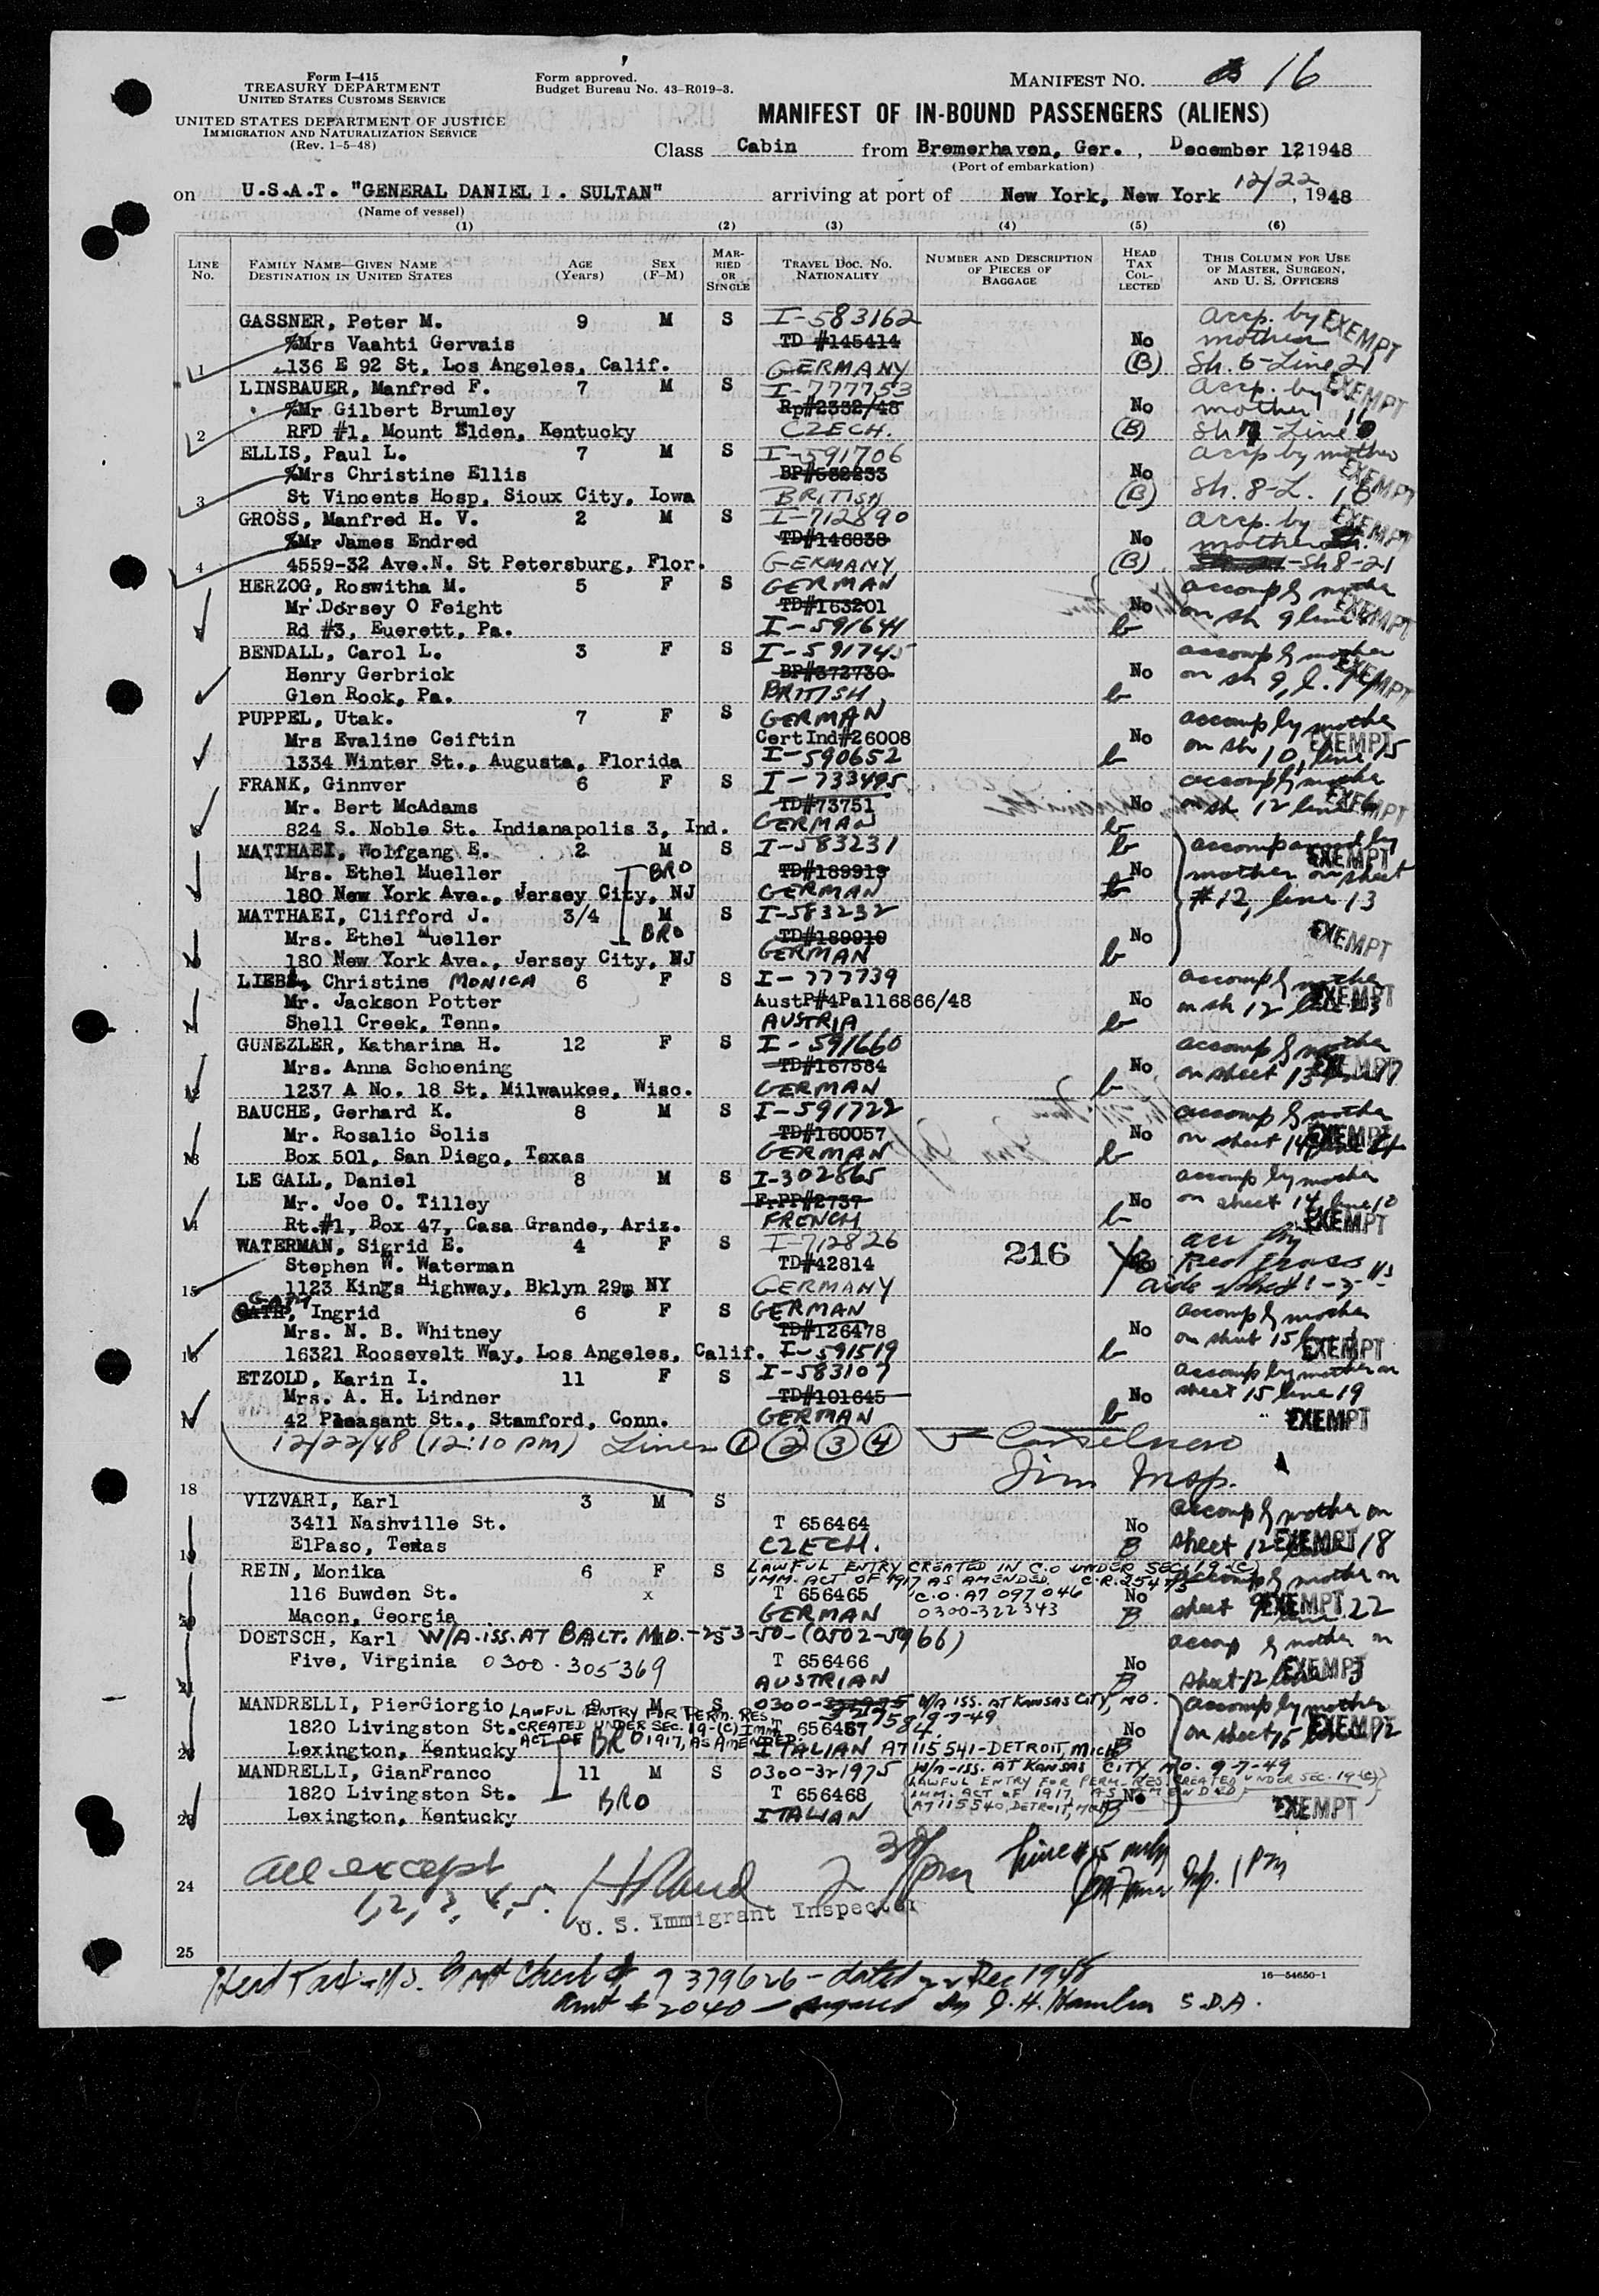 Form I-415
TREASURY DEPARTMENT
UNITED STATES CUSTOMS SERVICE
UNITED STATES DEPARTMENT OF JUSTICE
IMMIGRATION AND NATURALIZATION SERVICE
(Rev. 1-5-48)
Form approved.
Budget Bureau No. 43-R019-3.
MANIFEST NO. 16
MANIFEST OF IN-BOUND PASSENGERS (ALIENS)
Class Cabin from Bremerhaven, Ger., December 12 1948
(Port of embarkation)
on U.S.A.T. "GENERAL DANIEL I. SULTAN" arriving at port of New York, New York 12/22, 1948
(Name of vessel)
(1) (2) (3) (4) (5) (6)
LINE No. FAMILY NAME—GIVEN NAME DESTINATION IN UNITED STATES AGE (Years) SEX (F-M) MARRIED OR SINGLE TRAVEL DOC. NO. NATIONALITY NUMBER AND DESCRIPTION OF PIECES OF BAGGAGE HEAD TAX COLLECTED THIS COLUMN FOR USE OF MASTER, SURGEON, AND U. S. OFFICERS
GASSNER, Peter M. 9 M S I-583162 accp. by EXEMPT
%Mrs Vaahti Gervais TD #145414 No mother
1 136 E 92 St, Los Angeles, Calif. GERMANY (B) Sh. 6-Line 21
LINSBAUER, Manfred F. 7 M S I-777753 accp. by EXEMPT
%Mr Gilbert Brumley Rp#2332/48 No mother
2 RFD #1, Mount Elden, Kentucky CZECH. (B)
ELLIS, Paul L. 7 M S I-591706 accp by mother
%Mrs Christine Ellis BP#582233 No EXEMPT
3 St Vincents Hosp, Sioux City, Iowa BRITISH (B) Sh. 8-L. 16
GROSS, Manfred H. V. 2 M S I-712890 accp. by EXEMPT
%Mr James Endred TD#146838 No mother
4 4559-32 Ave.N. St Petersburg, Flor. GERMANY (B) Sh8-21
HERZOG, Roswitha M. 5 F S GERMAN accomp by mother
Mr Dorsey O Feight TD#163201 No on sh 9 line EXEMPT
Rd #3, Euerett, Pa. I-591641 b
BENDALL, Carol L. 3 F S I-591745 accomp by mother
Henry Gerbrick BP#372730 No on sh 9, l. EXEMPT
Glen Rock, Pa. BRITISH b
PUPPEL, Utak. 7 F S GERMAN accomp by mother
Mrs Evaline Ceiftin Cert Ind#26008 No on sh 10, line 15 EXEMPT
1334 Winter St., Augusta, Florida I-590652 b
FRANK, Ginnver 6 F S I-733495 accomp by mother
Mr. Bert McAdams TD#73751 No on sh 12 line EXEMPT
824 S. Noble St. Indianapolis 3, Ind. GERMAN b
MATTHAEI, Wolfgang E. 2 M S I-583231 b accompanied by
Mrs. Ethel Mueller BRO TD#189919 No mother on sheet EXEMPT
180 New York Ave., Jersey City, NJ GERMAN #12, line 13
MATTHAEI, Clifford J. 3/4 M S I-583232
Mrs. Ethel Mueller BRO TD#189910 No EXEMPT
180 New York Ave., Jersey City, NJ GERMAN b
Christine MONICA 6 F S I-777739 accomp by mother
Mr. Jackson Potter AustP#4Pall6866/48 No on sh 12 EXEMPT
Shell Creek, Tenn. AUSTRIA b
GUNEZLER, Katharina H. 12 F S I-591660 accomp by mother
Mrs. Anna Schoening TD#167584 No on sheet 13 EXEMPT
12 1237 A No. 18 St, Milwaukee, Wisc. GERMAN b
BAUCHE, Gerhard K. 8 M S I-591722 accomp by mother
Mr. Rosalio Solis TD#160057 No on sheet 14 EXEMPT
13 Box 501, San Diego, Texas GERMAN b
LE GALL, Daniel 8 M S I-302865 accomp by mother
Mr. Joe O. Tilley FrPP#2737 No on sheet 14, line 10
Rt.#1, Box 47, Casa Grande, Ariz. FRENCH b EXEMPT
WATERMAN, Sigrid E. 4 F S I-712826 acc by
Stephen W. Waterman TD#42814 216 Red Cross
15 1123 Kings Highway, Bklyn 29m NY GERMANY
GATH, Ingrid 6 F S GERMAN accomp by mother
Mrs. N. B. Whitney TD#126478 No on sheet 15
16 16321 Roosevelt Way, Los Angeles, Calif. I-591519 b EXEMPT
ETZOLD, Karin I. 11 F S I-583107 accomp by mother on
Mrs. A. H. Lindner TD#101645 No sheet 15 line 19
42 Pleasant St., Stamford, Conn. GERMAN b EXEMPT
12/22/48 (12:10 pm) Lines 1 2 3 4
Imm Insp.
18
VIZVARI, Karl 3 M S accomp by mother on
3411 Nashville St. T 656464 No
ElPaso, Texas CZECH. B sheet 12 EXEMPT 18
REIN, Monika 6 F S LAWFUL ENTRY CREATED IN C.O UNDER SEC. 19-(C)
IMM. ACT OF 1917 AS AMENDED. C.R. 25475 accomp by mother on
116 Buwden St. x T 656465 C.O. A7 097 046 No
20 Macon, Georgia GERMAN 0300-322343 B sheet 9 EXEMPT 22
DOETSCH, Karl W/A-ISS. AT BALT. MD.-2-3-50-(0502-5966) S accomp by mother on
Five, Virginia 0300-305369 T 656466 No
21 AUSTRIAN B sheet 12 EXEMPT
MANDRELLI, PierGiorgio 8 M S 0300- W/A ISS. AT KANSAS CITY, MO. accomp by mother
LAWFUL ENTRY FOR PERM. RES. 9-7-49
1820 Livingston St. CREATED UNDER SEC. 19-(C) IMM T 656467 No on sheet 15 EXEMPT
Lexington, Kentucky ACT OF 1917, AS AMENDED. BRO ITALIAN A7115 541-DETROIT, MICH B
MANDRELLI, GianFranco 11 M S 0300-321975 W/A-ISS. AT KANSAS CITY MO. 9-7-49
LAWFUL ENTRY FOR PERM. RES. CREATED UNDER SEC. 19-(C)
1820 Livingston St. BRO T 656468 IMM. ACT OF 1917, AS AMENDED, No
23 Lexington, Kentucky ITALIAN A7115540, DETROIT, MICH B EXEMPT
All except
24 1, 2, 3, 4, 5. 2 30 pm 1 Pm
U. S. Immigrant Inspector
25
Head Tax-U.S. Govt Check # 9379626 - dated 22 Dec 1948
16—54650-1
Amt $ 2040 - signed by J. H. Hamlin S.D.A.